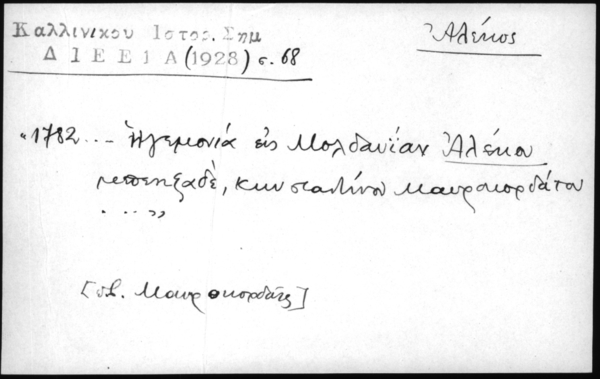 Καλλινικου Ιστορ. Σημ
Ἀλέκος
ΔΙΕΕ1Α (1928) σ. 68
"1782 ... Ἡγεμονιά εἰς Μολδαυΐαν Ἀλέκου
μπεηζαδὲ, Κωνσταντίνου Μαυροκορδάτου
...."
[ Μαυροκορδάτος]